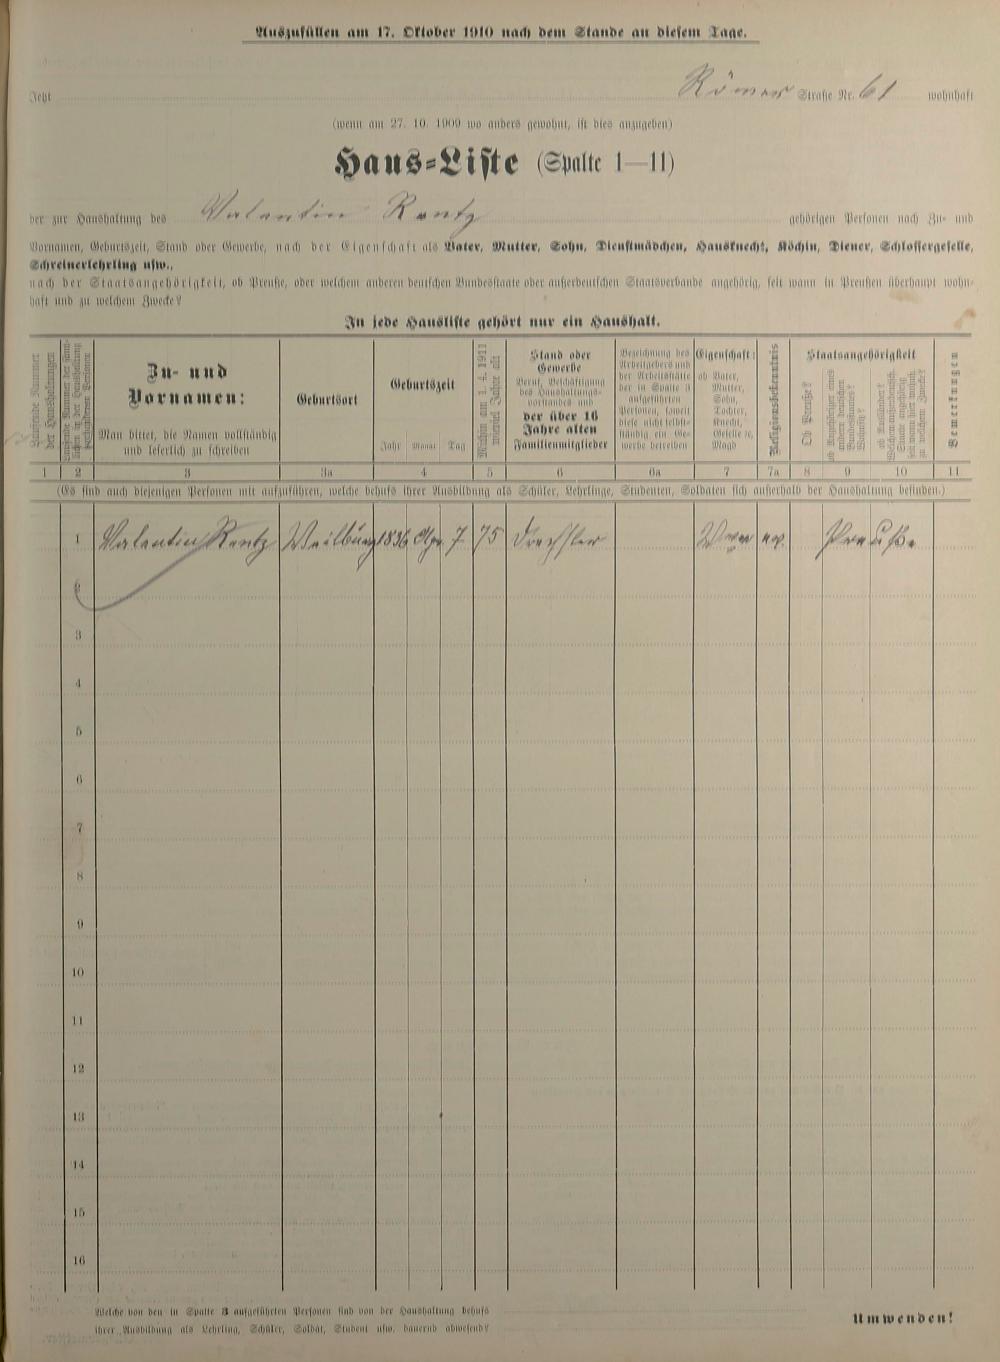 Auszufüllen am 17. Oktober 1910 nach dem Stande an diesem Tage.
Jetzt Römer Straße Nr. 61 wohnhaft
(wenn am 27. 10. 1909 wo anders gewohnt, ist dies anzugeben)
Haus=Liste (Spalte 1—11)
der zur Haushaltung des Valentin Rentz gehörigen Personen nach Zu- und
Vornamen, Geburtszeit, Stand oder Gewerbe, nach der Eigenschaft als Vater, Mutter, Sohn, Dienstmädchen, Hausknecht, Köchin, Diener, Schlossergeselle,
Schreinerlehrling usw.,
nach der Staatsangehörigkeit, ob Preuße, oder welchem anderen deutschen Bundesstaate oder außerdeutschen Staatsverbande angehörig, seit wann in Preußen überhaupt wohn-
haft und zu welchem Zwecke?
In jede Hausliste gehört nur ein Haushalt.
Laufende Nummer
der Haushaltungen
Laufende Nummer der sämt-
lichen in der Haushaltung
vorhandenen Personen
Zu- und
Vornamen:
Man bittet, die Namen vollständig
und leserlich zu schreiben
Geburtsort
Geburtszeit
Jahr Monat Tag
Mithin am 1. 4. 1911
wieviel Jahre alt
Stand oder
Gewerbe
Beruf, Beschäftigung
des Haushaltungs-
vorstandes und
der über 16
Jahre alten
Familienmitglieder
Bezeichnung des
Arbeitgebers und
der Arbeitsstätte
der in Spalte 3
aufgeführten
Personen, soweit
diese nicht selbst-
ständig ein Ge-
werbe betreiben
Eigenschaft:
ob Vater,
Mutter,
Sohn,
Tochter,
Knecht,
Geselle rc,
Magd
Religionsbekenntnis
Staatsangehörigkeit
Ob Preuße?
ob Angehöriger eines
andern deutschen
Bundesstaates?
ob Ausländer?
Welchem außerdeutsch.
Staate angehörig
seit wann hier wohnh.
zu welchem Zwecke?
Bemerkungen
1 2 3 3a 4 5 6 6a 7 7a 8 9 10 11
(Es sind auch diejenigen Personen mit aufzuführen, welche behufs ihrer Ausbildung als Schüler, Lehrlinge, Studenten, Soldaten sich außerhalb der Haushaltung befinden.)
1 Valentin Rentz Weilburg 1836 Apr. 7 75 Drechsler ev. Preuße
2
3
4
5
6
7
8
9
10
11
12
13
14
15
16
Welche von den in Spalte 3 aufgeführten Personen sind von der Haushaltung behufs
ihrer Ausbildung als Lehrling, Schüler, Soldat, Student usw. dauernd abwesend?
Umwenden!